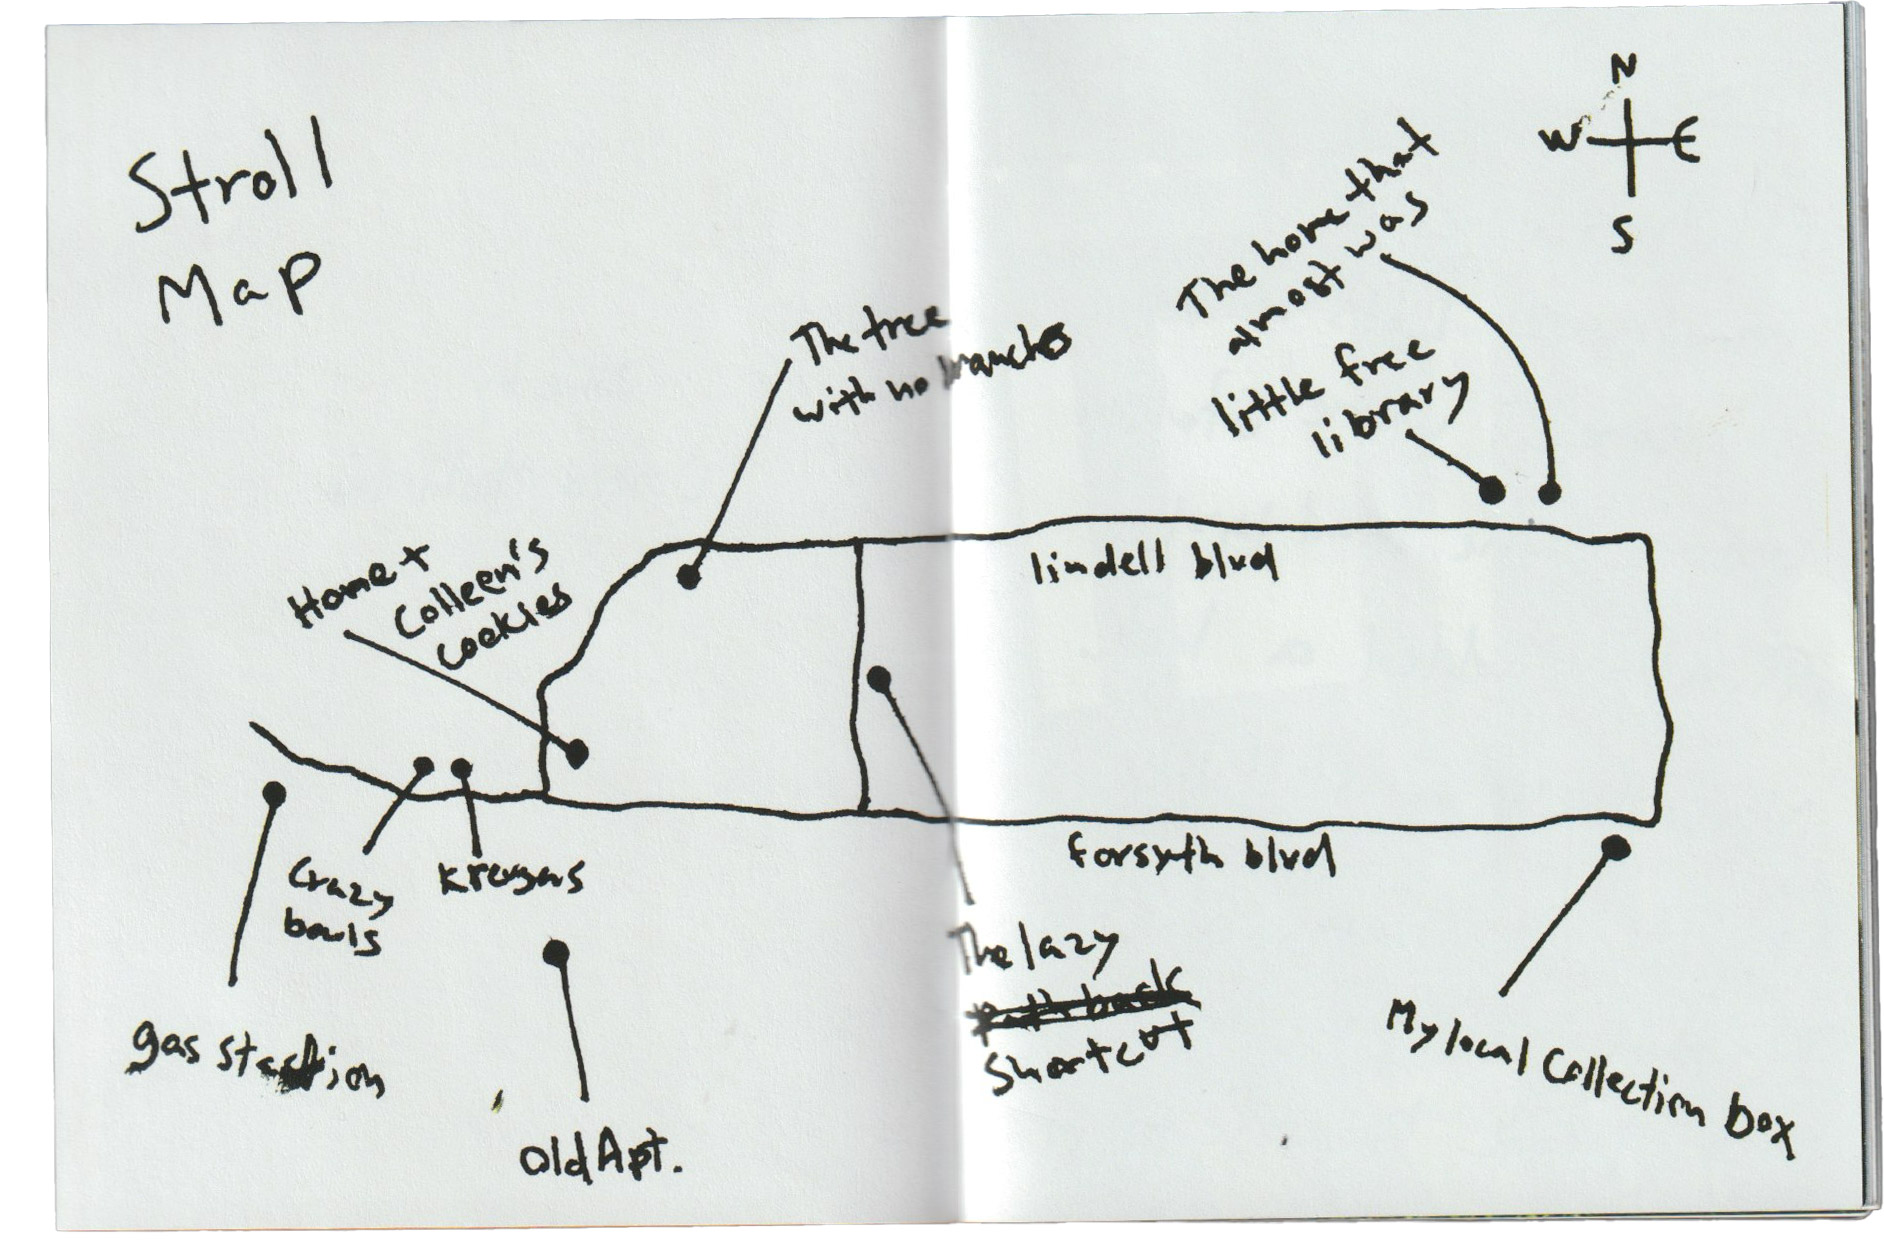 Stroll
Map
N
W E
S
The home that
almost was
little free
library
The tree
with no branches
lindell blvd
Home +
Colleen's
cookies
forsyth blvd
Crazy
bowls
gas station
Old Apt.
The lazy
path back
shortcut
My local Collection box